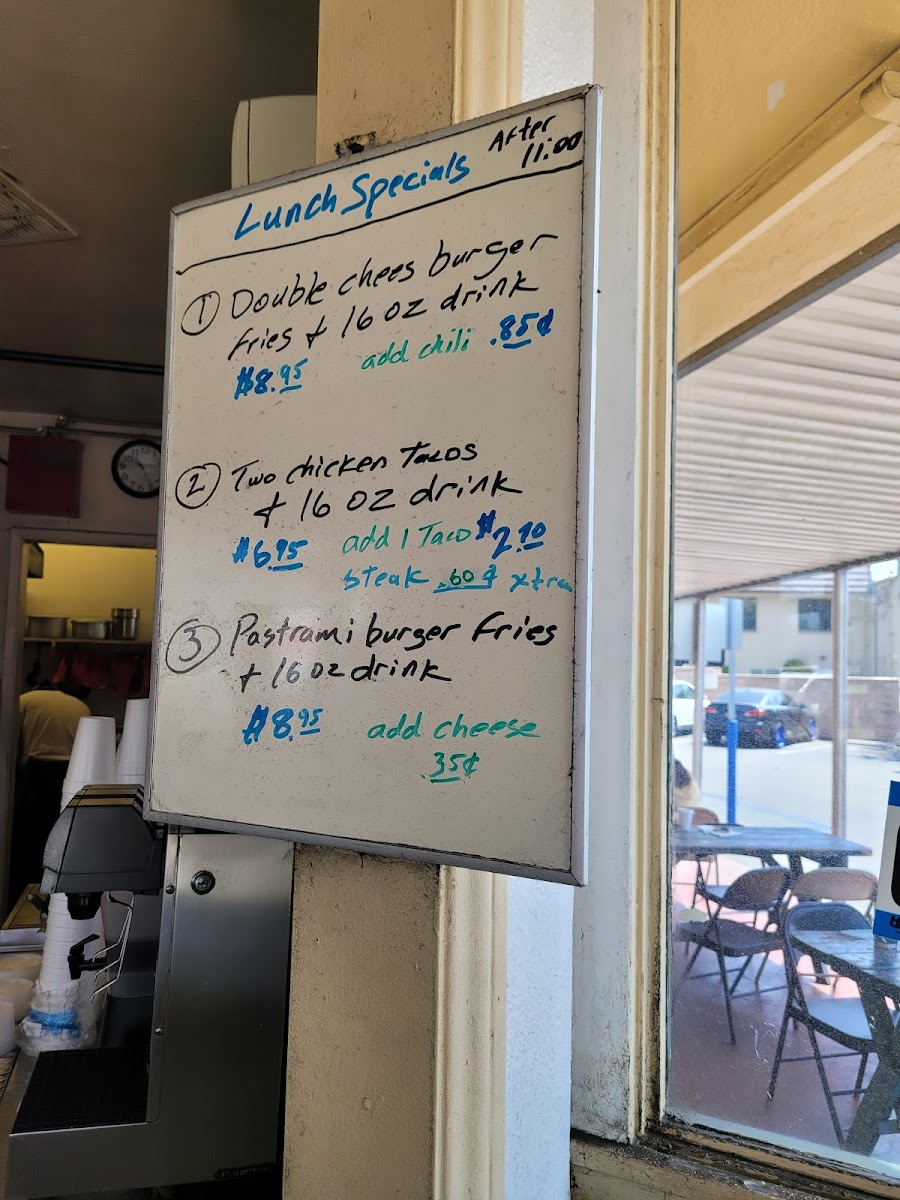 Lunch Specials After 11:00
① Double chees burger
fries + 16 oz drink
$8.95 add chili .85¢
② Two chicken Tacos
+ 16 oz drink
$6.95 add 1 Taco $2.90
steak .60¢ xtra
③ Pastrami burger fries
+ 16 oz drink
$8.95 add cheese
.35¢